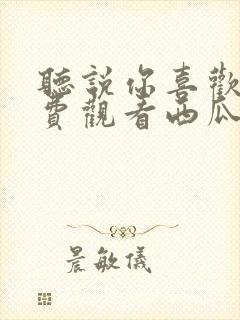 聽説你喜歡
費觀看西瓜
晨敏儀